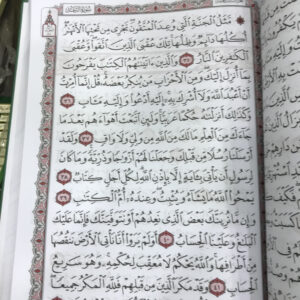 سُورَةُ الرَّعْدِ
۞ مَّثَلُ ٱلْجَنَّةِ ٱلَّتِى وُعِدَ ٱلْمُتَّقُونَ تَجْرِى مِن تَحْتِهَا ٱلْأَنْهَٰرُ
أُكُلُهَا دَآئِمٌ وَظِلُّهَا تِلْكَ عُقْبَى ٱلَّذِينَ ٱتَّقَوا۟ وَّعُقْبَى
ٱلْكَٰفِرِينَ ٱلنَّارُ ٣٥ وَٱلَّذِينَ ءَاتَيْنَٰهُمُ ٱلْكِتَٰبَ يَفْرَحُونَ
بِمَآ أُنزِلَ إِلَيْكَ وَمِنَ ٱلْأَحْزَابِ مَن يُنكِرُ بَعْضَهُۥ قُلْ إِنَّمَآ أُمِرْتُ
أَنْ أَعْبُدَ ٱللَّهَ وَلَآ أُشْرِكَ بِهِۦٓ إِلَيْهِ أَدْعُوا۟ وَإِلَيْهِ مَـَٔابِ
٣٦ وَكَذَٰلِكَ أَنزَلْنَٰهُ حُكْمًا عَرَبِيًّا وَلَئِنِ ٱتَّبَعْتَ أَهْوَآءَهُم بَعْدَمَا
جَآءَكَ مِنَ ٱلْعِلْمِ مَا لَكَ مِنَ ٱللَّهِ مِن وَلِىٍّ وَلَا وَاقٍ ٣٧ وَلَقَدْ
أَرْسَلْنَا رُسُلًا مِّن قَبْلِكَ وَجَعَلْنَا لَهُمْ أَزْوَٰجًا وَذُرِّيَّةً وَمَا كَانَ
لِرَسُولٍ أَن يَأْتِىَ بِـَٔايَةٍ إِلَّا بِإِذْنِ ٱللَّهِ لِكُلِّ أَجَلٍ كِتَابٌ ٣٨
يَمْحُوا۟ ٱللَّهُ مَا يَشَآءُ وَيُثْبِتُ وَعِندَهُۥٓ أُمُّ ٱلْكِتَٰبِ ٣٩
وَإِن مَّا نُرِيَنَّكَ بَعْضَ ٱلَّذِى نَعِدُهُمْ أَوْ نَتَوَفَّيَنَّكَ فَإِنَّمَا عَلَيْكَ
ٱلْبَلَٰغُ وَعَلَيْنَا ٱلْحِسَابُ ٤٠ أَوَلَمْ يَرَوْا۟ أَنَّا نَأْتِى ٱلْأَرْضَ نَنقُصُهَا
مِنْ أَطْرَافِهَا وَٱللَّهُ يَحْكُمُ لَا مُعَقِّبَ لِحُكْمِهِۦ وَهُوَ سَرِيعُ
ٱلْحِسَابِ ٤١ وَقَدْ مَكَرَ ٱلَّذِينَ مِن قَبْلِهِمْ فَلِلَّهِ ٱلْمَكْرُ جَمِيعًا